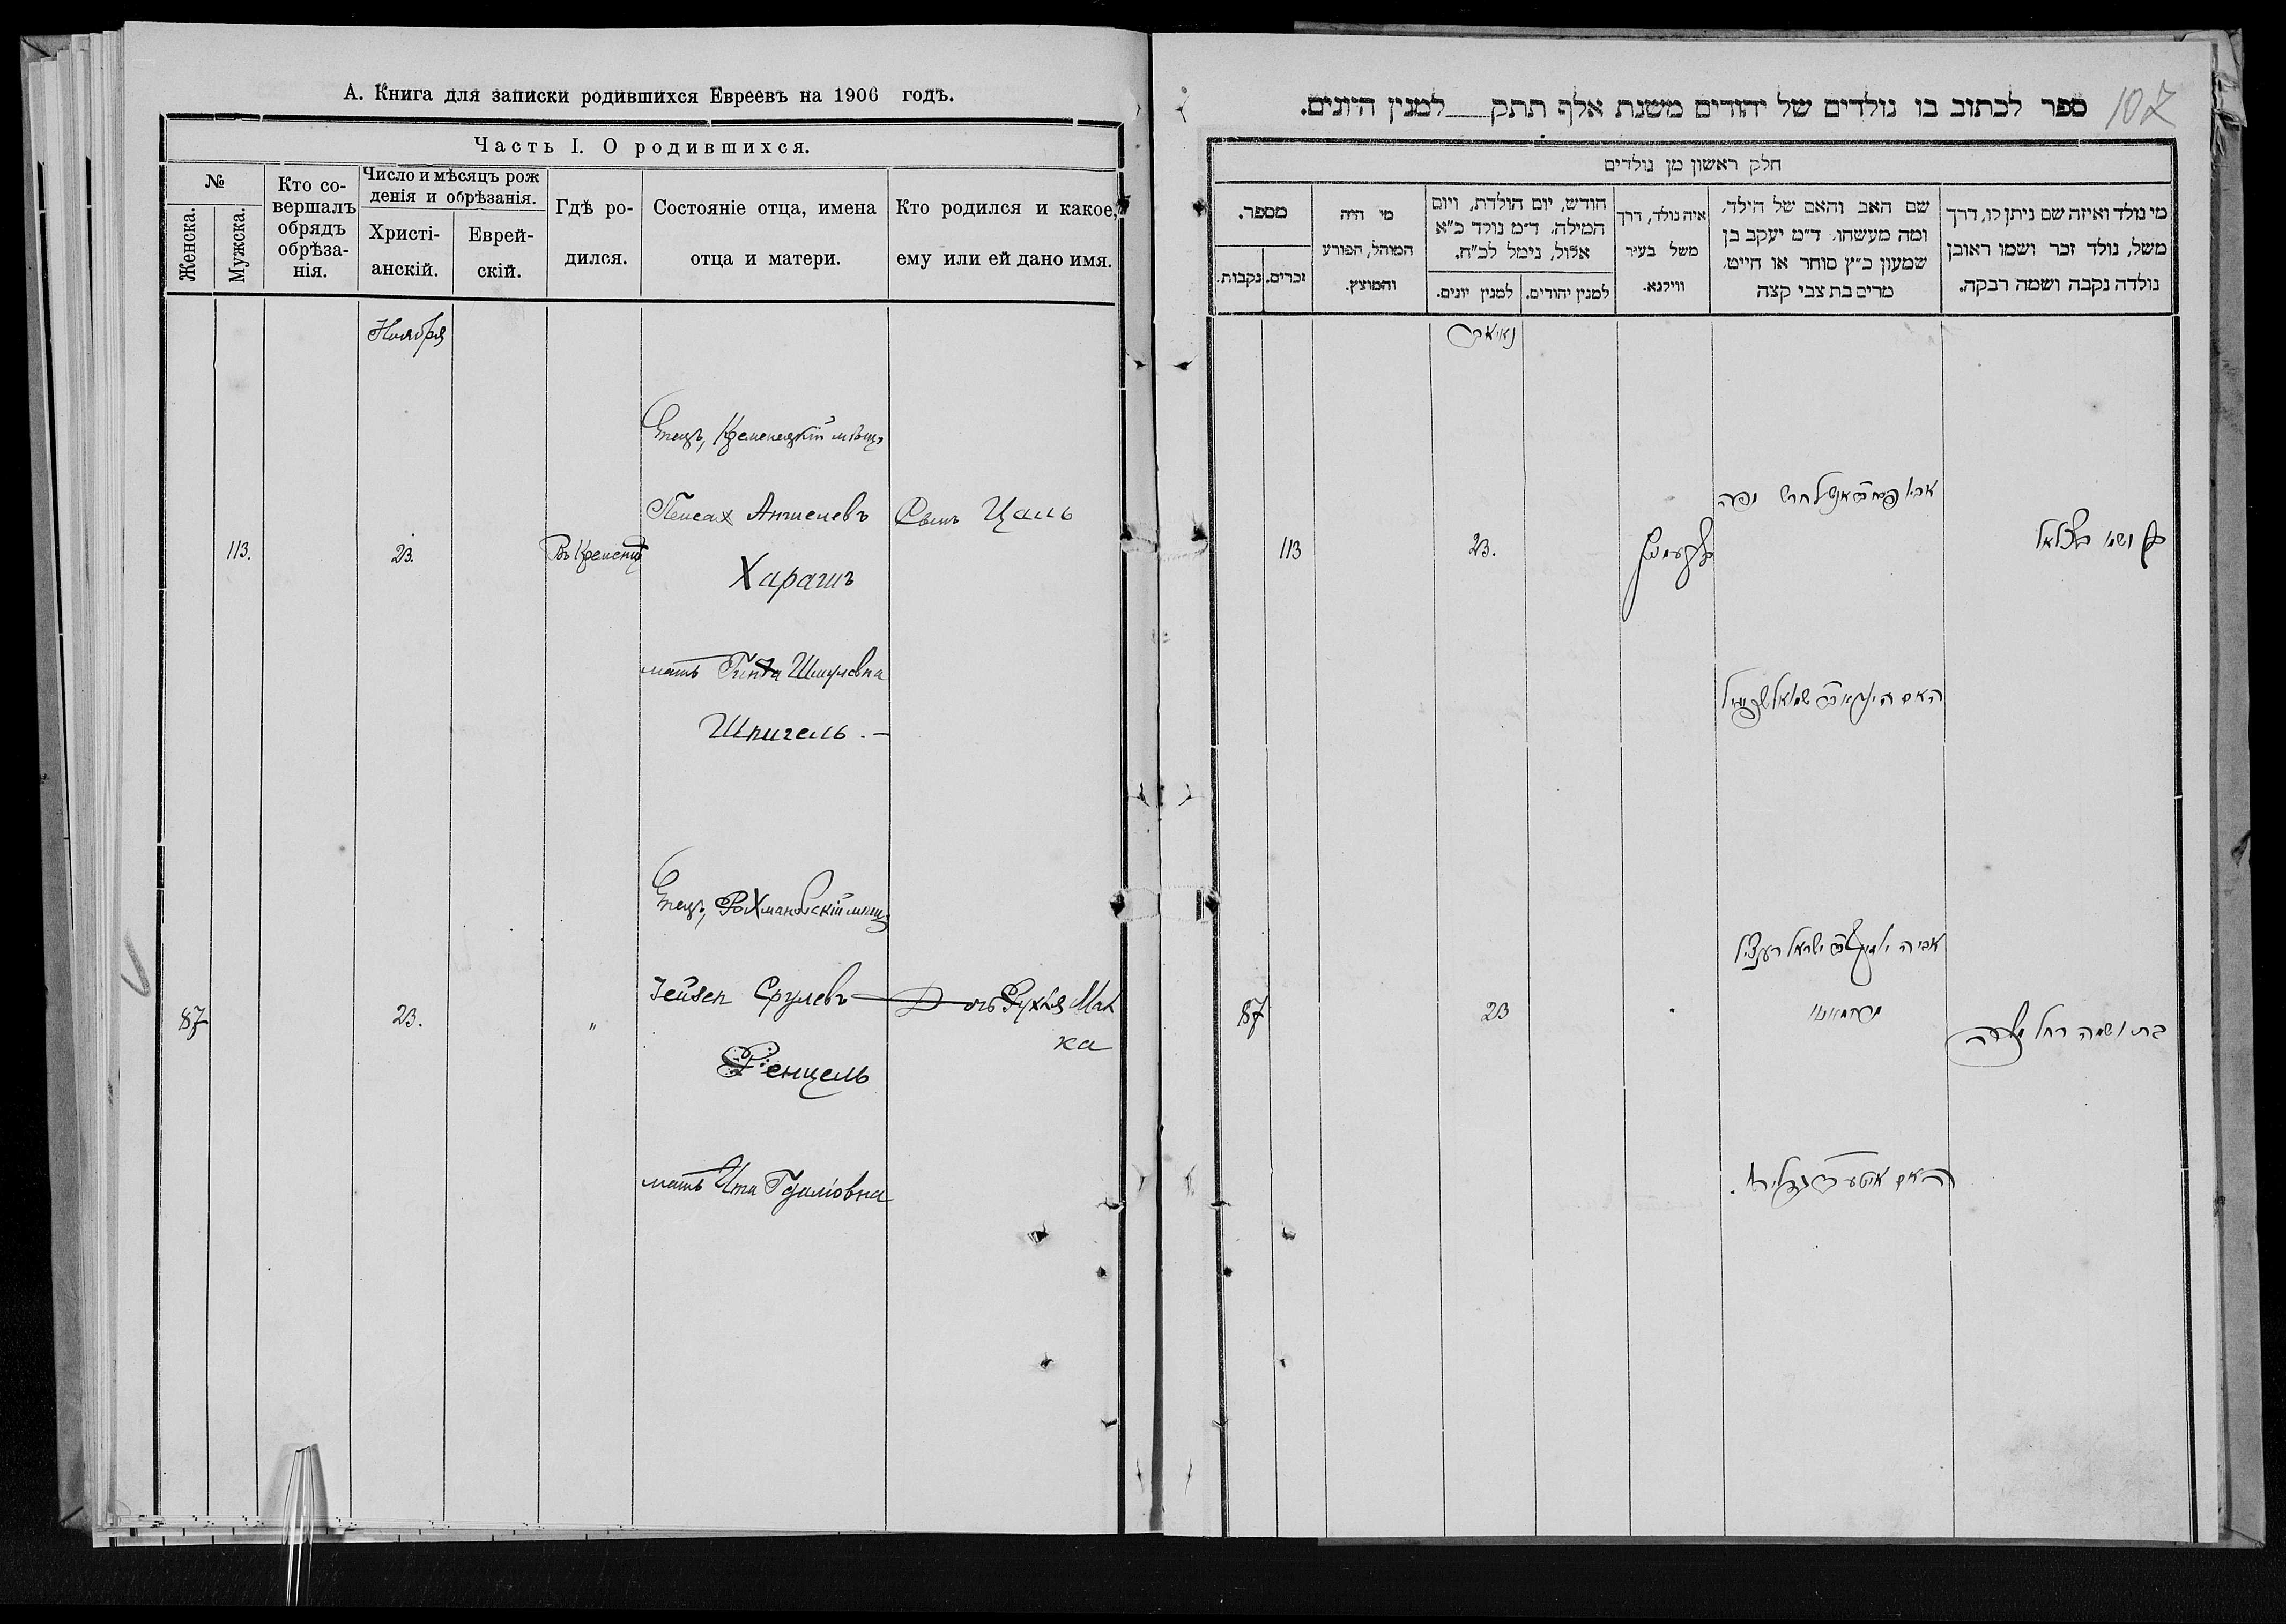 А. Книга для записки родившихся Евреевъ на 1906 годъ.
Часть I. О родившихся.
№
Женска.
Мужска.
Кто со-
вершалъ
обрядъ
обрѣза-
нія.
Число и мѣсяцъ рож
денія и обрѣзанія.
Христі-
анскій.
Еврей-
скій.
Гдѣ ро-
дился.
Состояніе отца, имена
отца и матери.
Кто родился и какое,
ему или ей дано имя.
Ноября
Отецъ, Кременецкій мѣщ.
Пейсах Аншелевъ
Сынъ Цаль
113.
23.
Въ Кременцѣ
Харашъ
мать Гинда Шмулевна
Шпигель. —
Отецъ, Рохмановскій мѣщ.
Срулевъ
Дочь Рухля Мал
ка
87
23.
"
Ренцель
мать Ита Гдаліовна
ספר לכתוב בו נולדים של יהודים משנת אלף תתק למנין היונים.
107
חלק ראשון מן נולדים
מספר.
נקבות.
זכרים.
מי היה
המוהל, הפורע
והמוצץ.
חודש, יום הולדת, ויום
המילה. ד״מ נולד כ״א
אלול, נימל לכ״ח.
למנין יונים.
למנין יהודים.
איה נולד, דרך
משל בעיר
ווילנא.
שם האב והאם של הילד,
ומה מעשהו. ד״מ יעקב בן
שמעון כ״ץ סוחר או חייט.
מרים בת צבי קצה
מי נולד ואיזה שם ניתן לו, דרך
משל, נולד זכר ושמו ראובן
נולדה נקבה ושמה רבקה.
נאיאבר
113
23.
בן ושמו בצלאל
האם הינדא שמואל שפיגיל
אביה ישראל רענציל
87
23
בת ושמה רחל מלכה
האם איטע גדליה